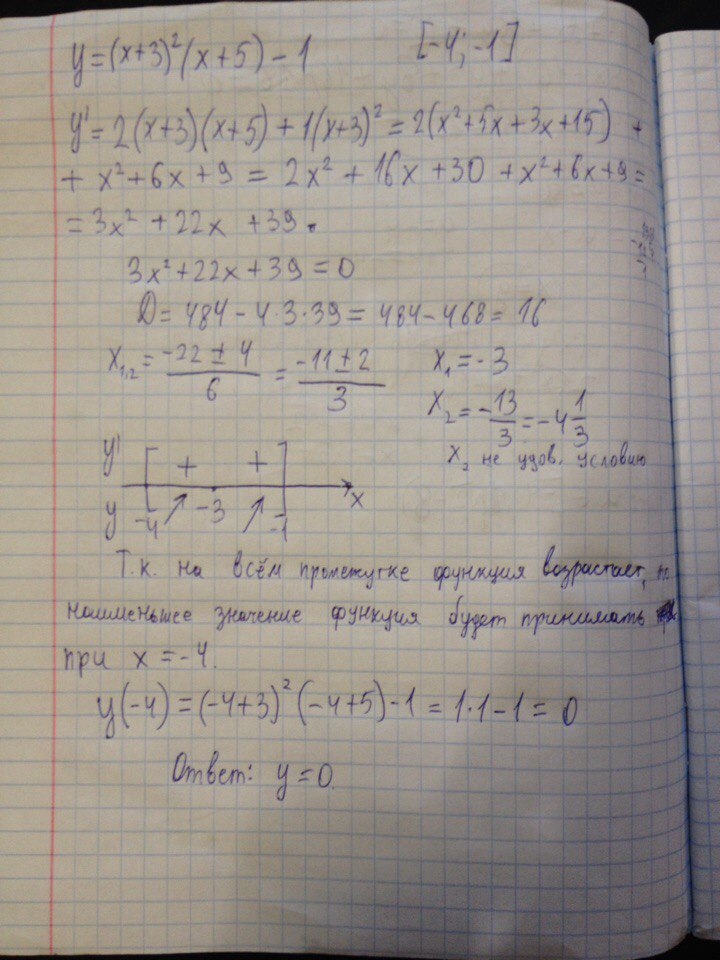 y=(x+3)²(x+5)-1 [-4;-1]
y'=2(x+3)(x+5)+1(x+3)²=2(x²+5x+3x+15)+
+x²+6x+9=2x²+16x+30+x²+6x+9=
=3x²+22x+39.
3x²+22x+39=0
D=484-4·3·39=484-468=16
x₁,₂=(-22±4)/6=(-11±2)/3 x₁=-3
x₂=-13/3=-4 1/3
x₂ не удов. условию
y' [ + + ]
y -4 ↗ -3 ↗ -1 x
Т.к. на всём промежутке функция возрастает, то
наименьшее значение функция будет принимать
при x=-4.
y(-4)=(-4+3)²(-4+5)-1=1·1-1=0
Ответ: y=0.